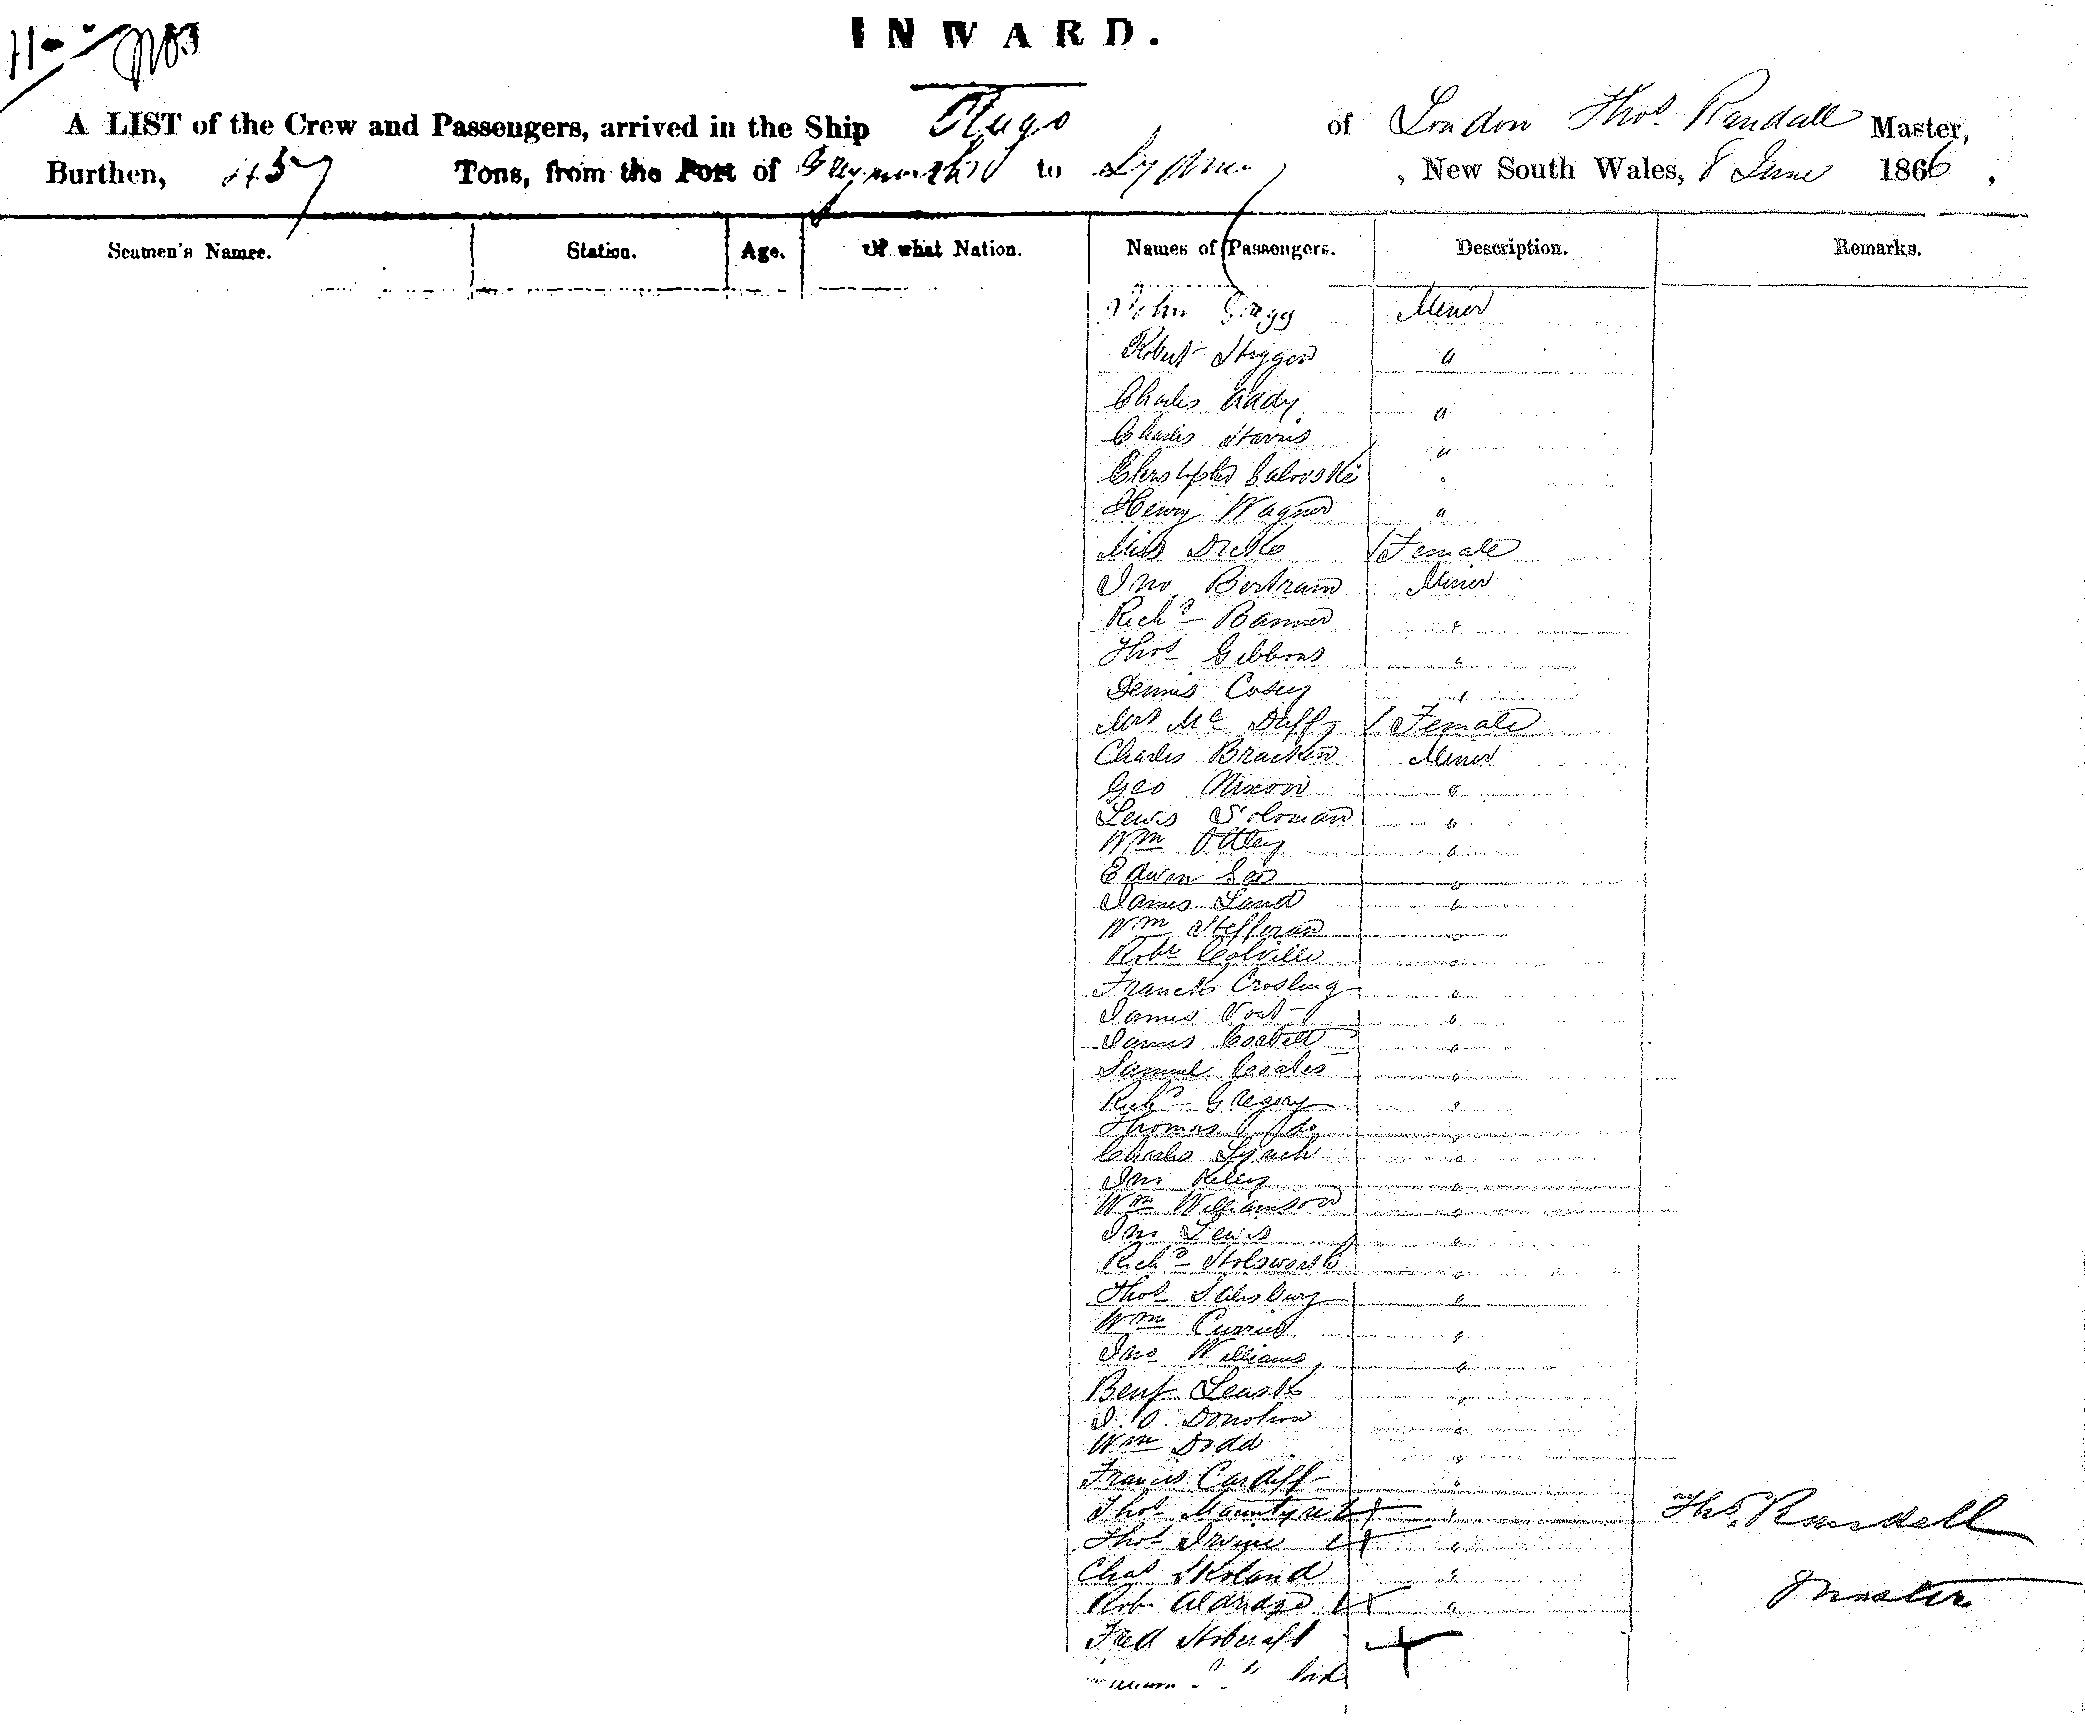 INWARD.
A LIST of the Crew and Passengers, arrived in the Ship Hugo of London Thos Randall Master,
Burthen, 457 Tons, from the Port of Greymouth to Sydney, New South Wales, 8 June 1866,
Seamen's Names. Station. Age. Of what Nation. Names of Passengers. Description. Remarks.
John Gregg Miner
Robert "
Charles "
Charles Harris "
"
Henry Wagner "
Miss Female
Jno Bertram Miner
Richd "
Thos Gibbons "
Dennis Casey "
Mrs Mc Duffy Female
Charles Bracken Miner
Geo Nixon "
Lewis Soloman "
Wm Ottley "
Edwin "
James "
Wm Heffernan "
Robt Colville "
Francis Crosling "
James "
James Corbett "
Samuel Coates "
Richd Gregory "
Thomas do "
Charles Lynch "
Jno Riley "
Wm Williamson "
Jno Lewis "
Richd Holsworth "
Thos Salisbury "
Wm Currie "
Jno Williams "
Benj Leask "
J. O. Donohue "
Wm Dodd "
Francis Cardiff "
Thos "
Thos Irvine "
Chas "
Rob Aldridge "
Fred Hobcraft
Thos. Randell
Master